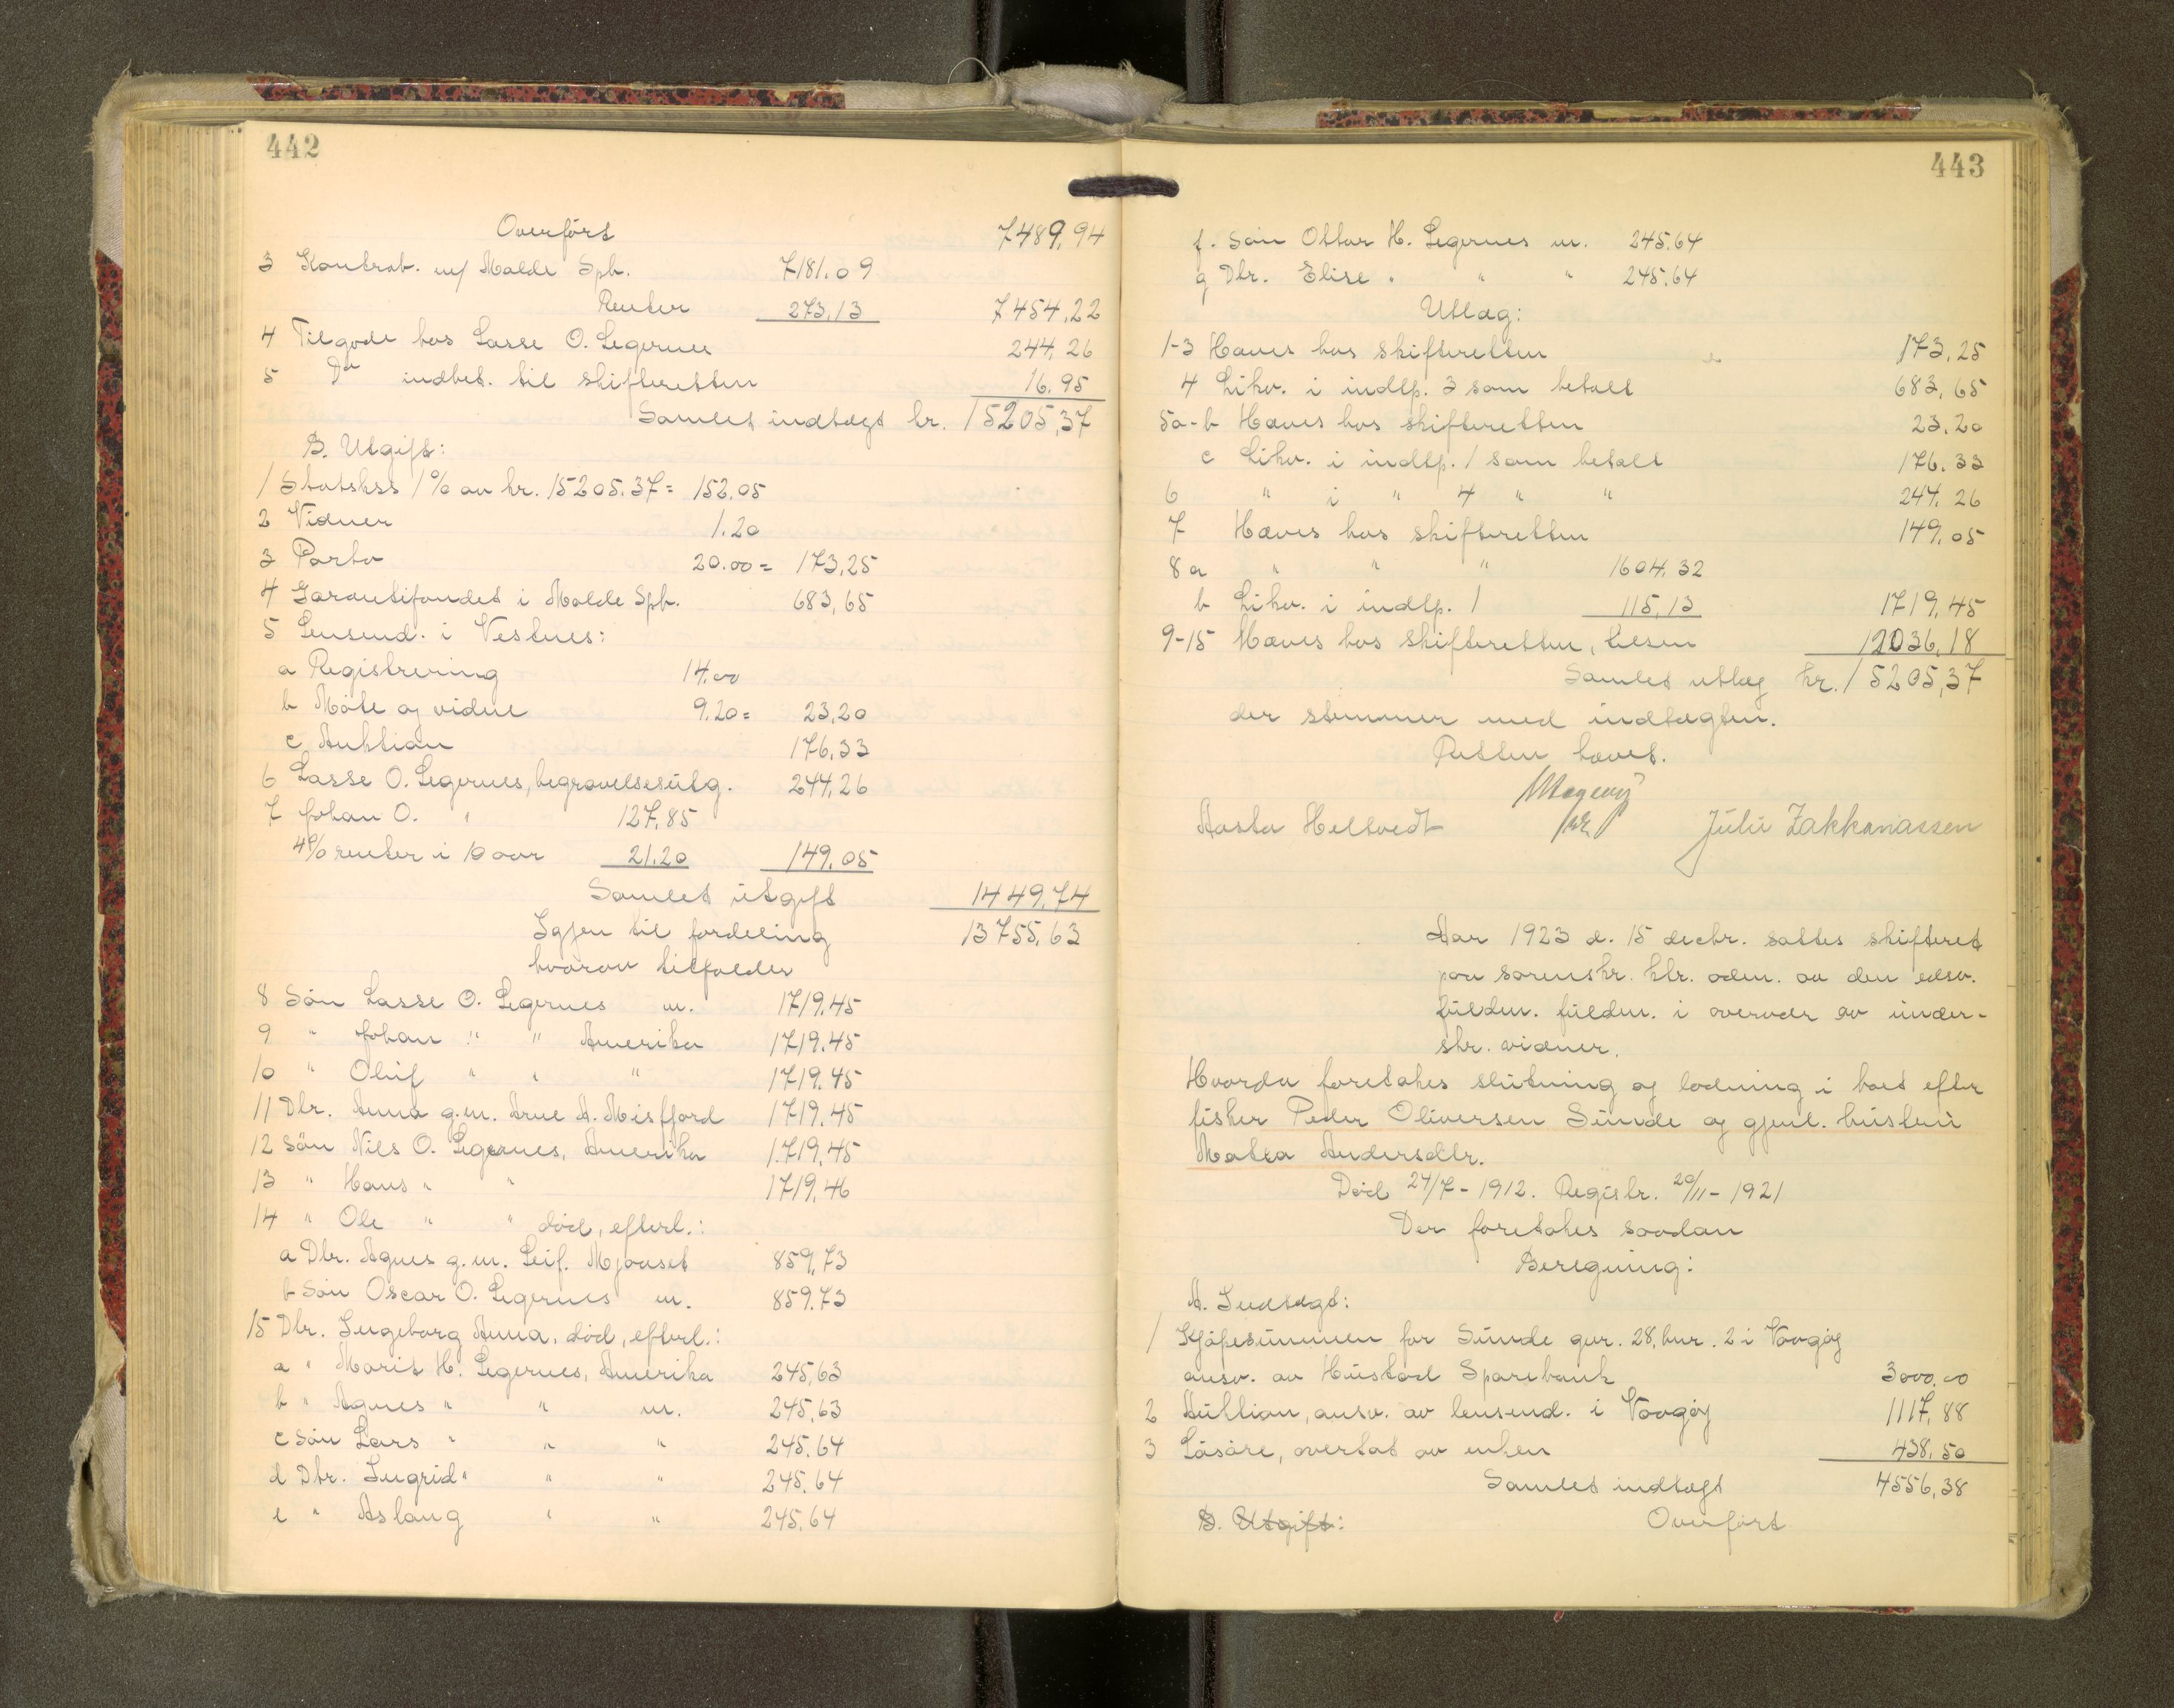 442
Overført 7489,94
3 Kontrab. m/ Molde Spb. 7181.09
Renter 273,13 7454,22
4 Tilgode hos Lasse O. Legernes 244,26
5 Do indbet. til skifteretten 16.95
Samlet indtægt kr. 15205,37
B. Utgift:
1 Statskss 1% av kr. 15205.37 = 152.05
2 Vidner 1.20
3 Porto 20.00 = 173,25
4 Garantifondet i Molde Spb. 683,65
5 Lensmd. i Vestnes:
a Registrering 14.00
b Møte og vidne 9.20 = 23,20
c Auktion 176,33
6 Lasse O. Legernes, begravelsesutg. 244,26
7 Johan O. " 127,85
4% renter i 10 aar 21.20 149.05
Samlet utgift 1449,74
Igjen til fordeling 13755,63
hvorav tilfalder
8 Søn Lasse O. Legernes m. 1719,45
9 " Johan " " Amerika 1719.45
10 " Oluf " " " 1719.45
11 Dtr. Anna g.m. Arne A. Misfjord 1719,45
12 Søn Nils O. Legernes, Amerika 1719,45
13 " Hans " " 1719,46
14 " Ole " " død, efterl.:
a Dtr. Agnes g.m. Leif. Mjaaset 859,73
b Søn Oscar O. Legernes m. 859.73
15 Dtr. Ingeborg Anna, død, efterl.:
a " Marit H. Legernes, Amerika 245,63
b " Agnes " " m. 245,63
c Søn Lars " " " 245.64
d Dtr. Ingrid " " " 245.64
e " Aslaug " " 245.64
443
f. Søn Ottar H. Legernes m. 245.64
g Dtr. Elise " " " 245.64
Utlæg:
1-3 Hæves hos skifteretten 173,25
4 Likv. i indtp. 3 som betalt 683,65
5a-b Hæves hos skifteretten 23.20
c Likv. i indtp. 1 som betalt 176.33
6 " i " 4 " " 244,26
7 Hæves hos skifteretten 149.05
8a " " " 1604.32
b Likv. i indtp. 1 115,13 1719,45
9-15 Hæves hos skifteretten, tilsm 12036,18
Samlet utlæg kr. 15205,37
der stemmer med indtægten.
Retten hævet.
Aasta Heltvedt Juliu Zakkariassen
Aar 1923 d. 15 decbr. sattes skifteret
paa sorenskr. ktr. adm. av den edsv.
fuldm. fuldm. i overvær av under-
skr. vidner.
Hvorda foretokes slutning og lodning i boet efter
fisker Peder Oliversen Sunde og gjenl. hustru
Matea Andersdtr.
Død 24/7 - 1912. Registr. 20/11 - 1921
Der foretokes saadan
Beregning:
A. Indtægt:
1 Kjøpesummen for Sunde gnr. 28, bnr. 2 i Vaagøy
ansv. av Hustad Sparebank 3000.00
2 Auktion, ansv. av lensmd. i Vaagøy 1117,88
3 Løsøre, overtat av enken 438,50
Samlet indtægt 4556,38
B. Utgift: Overført